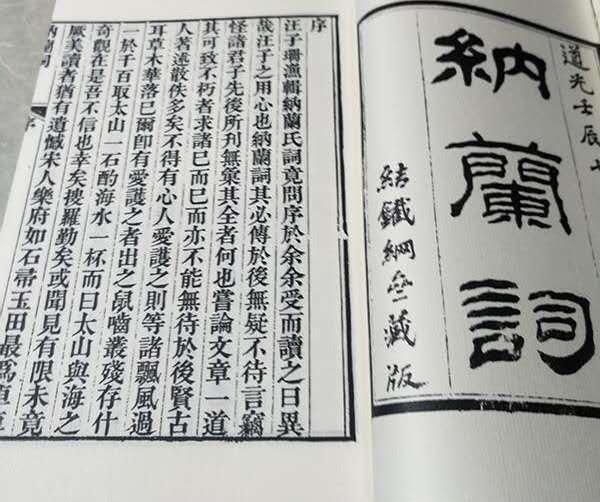 道光壬辰七
納蘭詞
結鐵網亝藏版
序
汪子珊漁輯納蘭氏詞竟問序於余余受而讀之曰異
哉汪子之用心也納蘭詞其必傳於後無疑不待言竊
怪諸君子先後所刊無裒其全者何也嘗論文章一道
其可致不朽者求諸巳而巳而亦不能無待於後賢古
人著述散佚多矣不得有心人愛護之則等諸飄風過
耳草木華落巳爾卽有愛護之者出之鼠嚙叢殘存什
一於千百取太山一石酌海水一杯而曰太山與海之
奇觀在是吾不信也幸矣搜羅勤矣或聞見有限未竟
厥美讀者猶有遺憾宋人樂府如石帚玉田最爲卓卓
納蘭詞 序